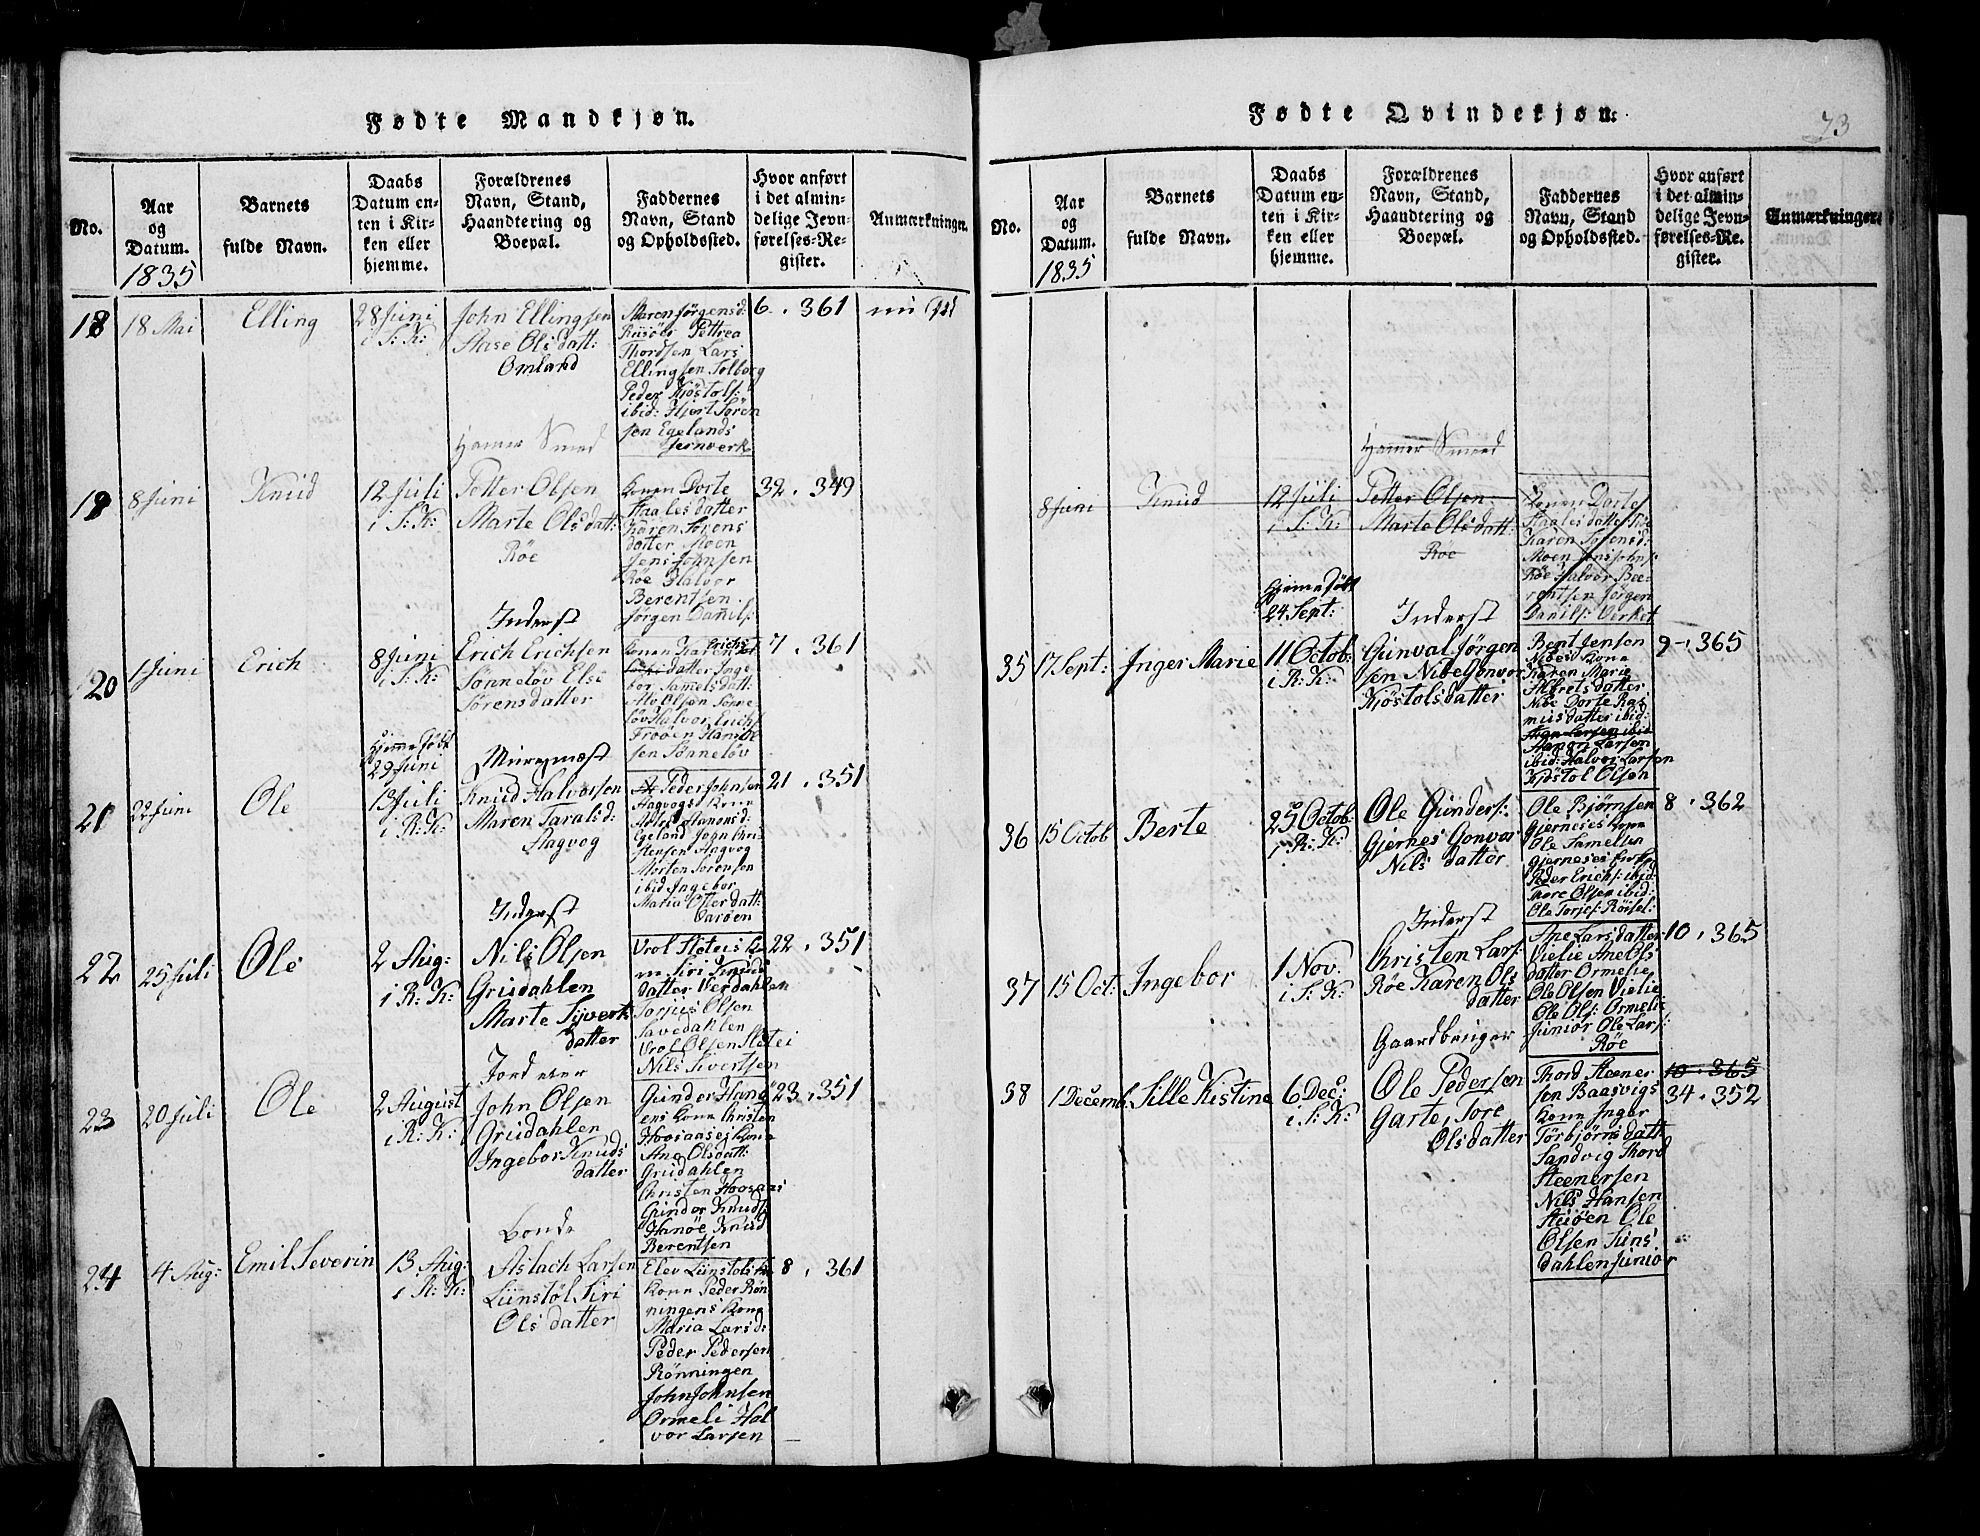 Fødte Mandkjøn.
No.
Aar
og
Datum.
1835
Barnets
fulde Navn.
Daabs
Datum en-
ten i Kir-
ken eller
hjemme.
Forældrenes
Navn, Stand,
Haandtering og
Boepæl.
Faddernes
Navn, Stand
og Opholdssted.
Hvor anført
i det almin-
delige Jevn-
førelses-Re-
gister.
Anmærkninger.
18
18 Mai
Elling
28 Juni
i S: K:
John Ellingsen
Aase Olsdatt:
Omland
Maren Jörgensd:
Riisöer Pettrea
Thordsen Lars
Ellingsen Solborg
Peder Kjöstols:
ibid: Hjert Sören
sen Egelands
Jernværk
6. 361
19
8 Juni
Knud
12 Juli
i S: K:
Hamer Smed
Petter Olsen
Marte Olsdat:
Röe
Konen Dorte
Staalesdatter
Karen Sörens
datter Moen
Jens Johnsen
Röe Halvor
Berentsen
Jörgen Daniels:
32. 349
20
1 Juni
Erich
8 Juni
i S: K:
Inderst
Erich Erichsen
Sönnelöv Else
Sörensdatter
Konen Karen Erichs
datter Inge
bor Samelsdatt:
Ole Olsen Sönne
löv Halvor Erichs:
Fröen Haniel
sen Sönnelöv
7. 361
21
22 Juni
Ole
Hjemmedöbt
29 Juni
13 Juli
i R: K:
Muremæst
Knud Halvorsen
Maren Taralsd:
Hagvog
Peder Johnsen
Hagvogs Kone
Egeland John Chri-
stensen Hagvog
Morten Sörensen
ibid Ingebor
Maria Osterdatt:
Barøen
21. 351
22
25 Juli
Ole
2 Aug:
i R: K:
Inderst
Nils Olsen
Grisdahlen
Marte Syvert
datter
Vrol Sleteis Ko
ne Siri Knuds
datter Verdahlen
Torjus Olsen
Savedahlen
Vrol Olsen Sletei
Nils Sivertsen
22. 351
23
20 Juli
Ole
2 August
i R: K:
Jordeier
John Olsen
Grisdahlen
Ingebor Knuds
datter
Gunder Hanö
ens Kone Christen
Hovsaasei Kone
Ane Olsdatt:
Grisdahlen
Christen Hovsaas
Gunder Knuds:
Hanöe Knud
Berentsen
23. 351
24
4 Aug:
Emil Severin
13 Aug:
i R: K:
Bonde
Aslach Larsen
Lünstöl Siri
Olsdatter
Elev Lünstöls
Kone Peder Rön
ningens Kone
Maria Larsd:
Peder Pedersen
Rönningen
John Johnsen
Ormeli Hal
vor Larsen
8. 361
Fødte Qvindekjøn.
73
No.
Aar
og
Datum.
1835
Barnets
fulde Navn.
Daabs
Datum en-
ten i Kir-
ken eller
hjemme.
Forældrenes
Navn, Stand,
Haandtering og
Boepæl.
Faddernes
Navn, Stand
og Opholdssted.
Hvor anført
i det almin-
delige Jevn-
førelses-Re-
gister.
Anmærkninger.
8 Juni
Knud
12 Juli
i S: K:
Hamer Smed
Petter Olsen
Marte Olsdatt:
Röe
Konen Dorte
Staalesdatter
Karen Sörensd:
Moen Jens Johns:
Röe Halvor Bee-
rentsen Jörgen
Daniels: Verket
35
17 Sept:
Inger Marie
Hjemmedöbt
24 Sept:
11 Octob:
i R: K:
Inderst
Gunval Jörgen
sen Nibe Gonvor
Kjöstolsdatter
Bent Jensen
Nibes Kone
Karen Marie
Nibe Dorte Ras
musdatter ibid:
Hans Larsen ibid
Larsen
ibid: Halvor Larsen
Kjöstol Olsen
9 - 365
36
15 Octob
Berte
25 Octob:
i R: K:
Ole Gunders:
Gjernes Gonvor
Nils datter
Ole Björnsen
Gjerneses Kone
Ole Samelsen
Peder Erichs: ibid:
Tore Olsen ibid:
Ole Torjes: Röisel:
8. 362
37
15 Oct:
Ingebor
1 Nov.
i S: K:
Inderst
Christen Lars:
Röe Karen Ols
datter
Ane Larsdatter
Vielie Ane Ols
datter Ormelie
Ole Olsen Vielie
Ole Ols: Ormeli
Junior Ole Lars:
Röe
10. 365
38
1 Decemb.
Sille Kistine
6 Dec:
i S: K:
Gaardbruger
Ole Pedersen
Garte, Tore
Olsdatter
Thord Steener
sen Baasvigs
Kone Inger
Törbjörns datt:
Sandvig Thord
Steenersen
Nils Hansen
Steiöen Ole
Olsen Suns
dahlen Junior
10. 365
34. 352